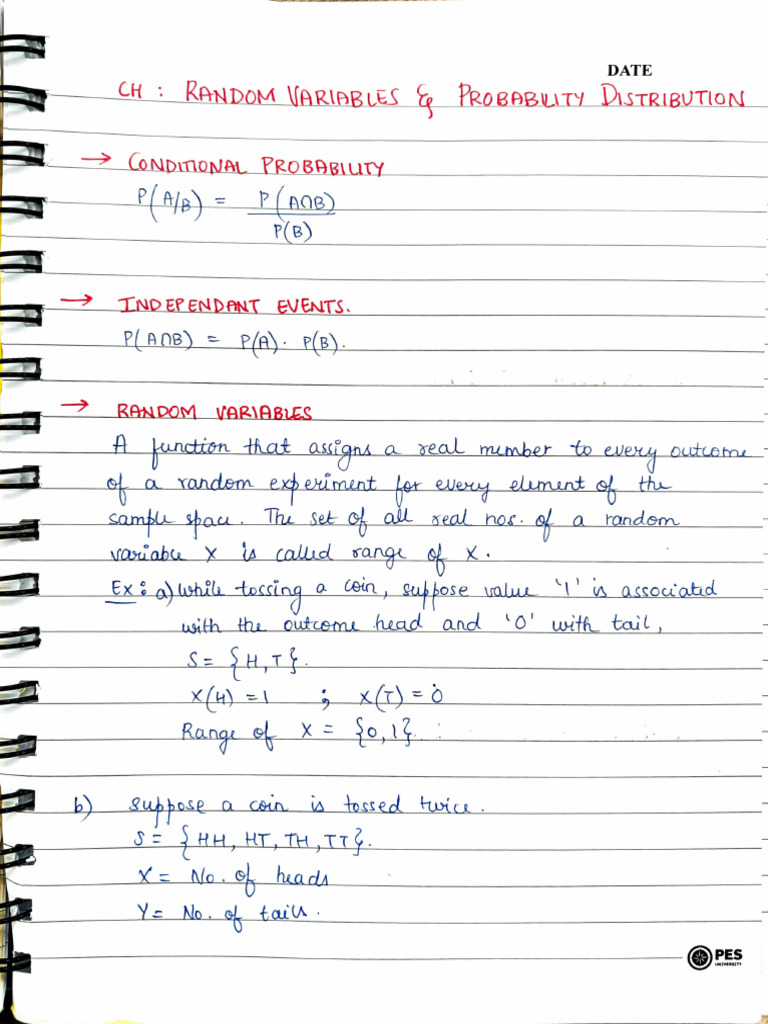 DATE
CH : RANDOM VARIABLES & PROBABILITY DISTRIBUTION
→ CONDITIONAL PROBABILITY
P(A/B) = P(A∩B)
P(B)
→ INDEPENDANT EVENTS.
P(A∩B) = P(A). P(B).
→ RANDOM VARIABLES
A function that assigns a real member to every outcome
of a random experiment for every element of the
sample space. The set of all real nos. of a random
variable X is called range of X.
Ex: a) While tossing a coin, suppose value '1' is associated
with the outcome head and '0' with tail,
S = {H, T}.
X(H) = 1 ; X(T) = 0
Range of X = {0, 1}.
b) Suppose a coin is tossed twice.
S = {HH, HT, TH, TT}.
X = No. of heads
Y = No. of tails.
PES
UNIVERSITY